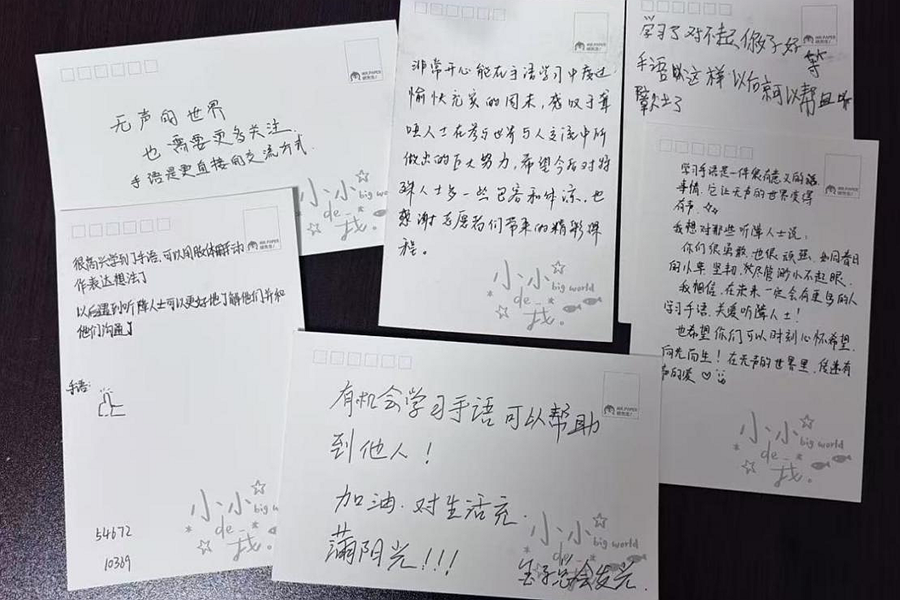 无声的世界
也需要更多关注
手语是更直接的交流方式.
小小
big world
de
我.
非常开心能在手语学习中度过
愉快充实的周末,感叹于聋
哑人士在参与世界与人交流中所
做出的巨大努力,希望今后对特
殊人士多一些包容和体谅.也
感谢志愿者们带来的精彩课
程。
小小
big world
de
我.
学习了对不起,你好等
手语
以后就可以帮
学习手语是一件很有意义的
事情,它让无声的世界变得
有声.
我想对那些听障人士说,
你们很勇敢,也很顽强,如同昔日
的小草坚韧,尽管渺小不起眼.
我相信,在未来一定会有更多的人
学习手语,关爱听障人士!
也希望你们可以时刻心怀希望,
向光而生!在无声的世界里,传递有
声的爱
小小
big world
de
我.
很高兴学到了手语,可以用肢体动
作表达想法了
以后遇到听障人士可以更好地了解他们并和
他们沟通了
手语:
54672
10369
小小
de
我.
有机会学习手语可以帮助
到他人!
加油.对生活充
满阳光!!!
小小
big world
金子总会发光.